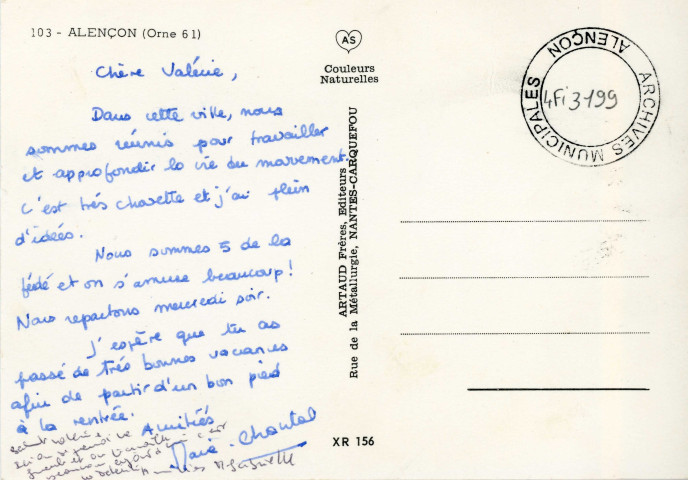 103 - ALENÇON (Orne 61)
Chère Valérie,
Dans cette ville, nous
sommes réunis pour travailler
et approfondir la vie du mouvement.
C'est très chouette et j'ai plein
d'idées.
Nous sommes 5 de la
fédé et on s'amuse beaucoup!
Nous repartons mercredi soir.
J'espère que tu as
passé de très bonnes vacances
afin de partir d'un bon pied
à la rentrée.
Amitiés
Marie-Chantal
AS
Couleurs
Naturelles
ARTAUD Frères, Editeurs
Rue de la Métallurgie, NANTES-CARQUEFOU
XR 156
ARCHIVES MUNICIPALES
ALENÇON
4Fi3-199